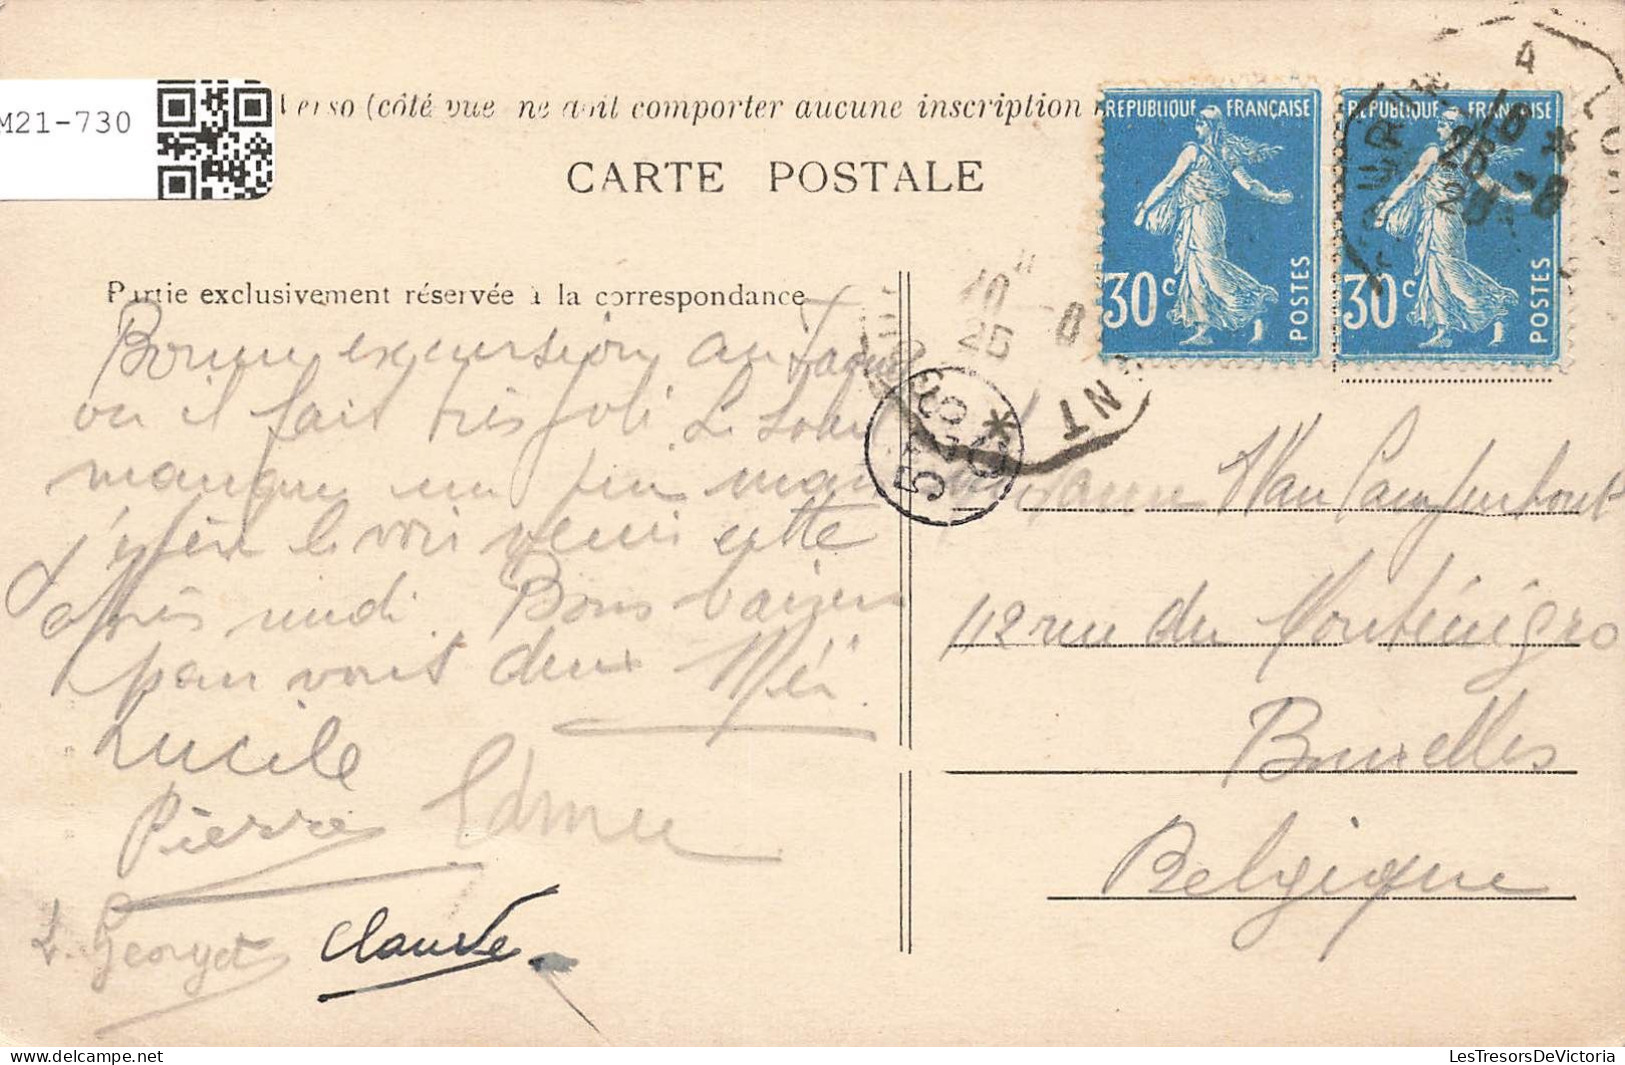 M21-730
Verso (côté vue ne doit comporter aucune inscription
CARTE POSTALE
RÉPUBLIQUE FRANÇAISE
30c POSTES
RÉPUBLIQUE FRANÇAISE
30c POSTES
Partie exclusivement réservée à la correspondance
Bonne excursion au
ou il fait très joli. Le soleil
manque un peu mais
j'espère le voir venir cette
après midi. Bons baisers
pour vous deux
Lucile
Pierre
Georget Claude
Van
112 rue du Monténégro
Bruxelles
Belgique
LesTresorsDeVictoria